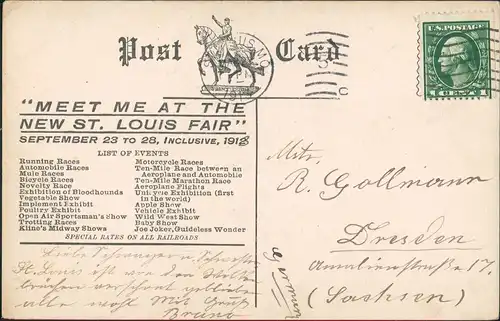 Post Card
U.S. POSTAGE
1 CENT 1
"MEET ME AT THE
NEW ST. LOUIS FAIR"
SEPTEMBER 23 TO 28, INCLUSIVE, 1912
LIST OF EVENTS
Running Races
Automobile Races
Mule Races
Bicycle Races
Novelty Race
Exhibition of Bloodhounds
Vegetable Show
Implement Exhibit
Poultry Exhibit
Open Air Sportsman's Show
Trotting Races
Kline's Midway Shows
Motorcycle Races
Ten-Mile Race between an
Aeroplane and Automobile
Ten-Mile Marathon Race
Aeroplane Flights
Unicycle Exhibition (first
in the world)
Apple Show
Vehicle Exhibit
Wild West Show
Baby Show
Joe Joker, Guideless Wonder
SPECIAL RATES ON ALL RAILROADS
Liebe Schwager u. Schwester
St. Louis ist von den
verschont geblieben
alle wohl Mit Gruß
Bruno
R. Gollmann
Dresden
Amalienstraße 17.
(Sachsen)
Germany